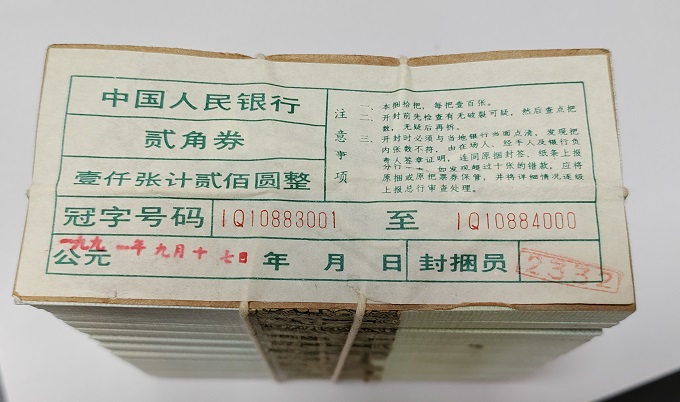 中国人民银行
贰角券
壹仟张计贰佰圆整
注意事项
一、本捆拾把,每把壹百张。
二、开封前先检查有无破裂可疑,然后查点把
数,无疑后再拆。
三、开封时必须与当地银行当面点清,发现把
内张数不符,由在场人、经手人及银行负
责人签章证明,连同原捆封签、纸条上报
分行一,如发现超过十张的错款,应将
原捆或原把票券保管,并将详细情况连级
上报总行审查处理。
冠字号码 IQ10883001 至 IQ10884000
公元 一九九一年九月十七日 年 月 日 封捆员 2332